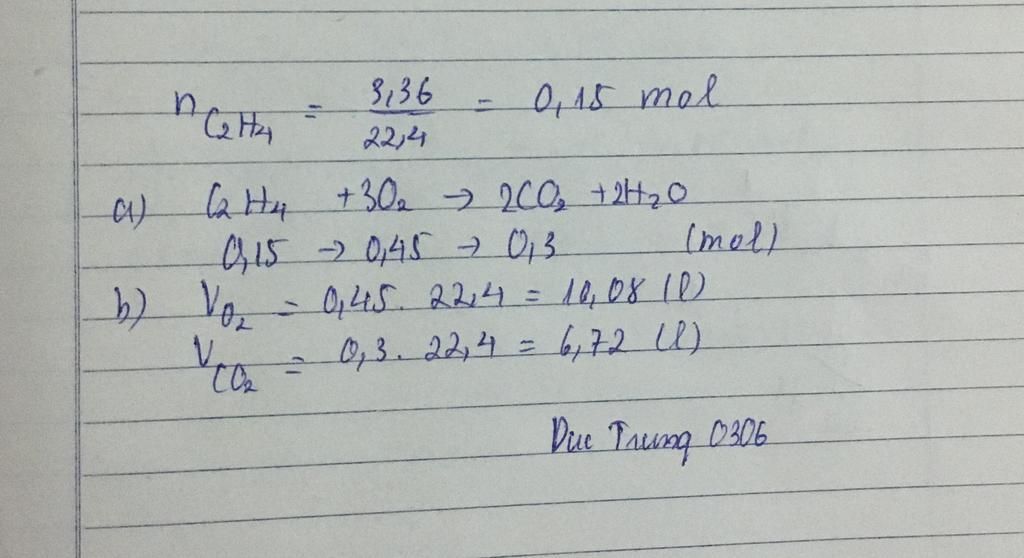 n C₂H₄ = 3,36/22,4 = 0,15 mol
a) C₂H₄ +3O₂ → 2CO₂ +2H₂O
0,15 → 0,45 → 0,3 (mol)
b) V O₂ = 0,45. 22,4 = 10,08 (l)
V CO₂ = 0,3. 22,4 = 6,72 (l)
Duc Trung 0306